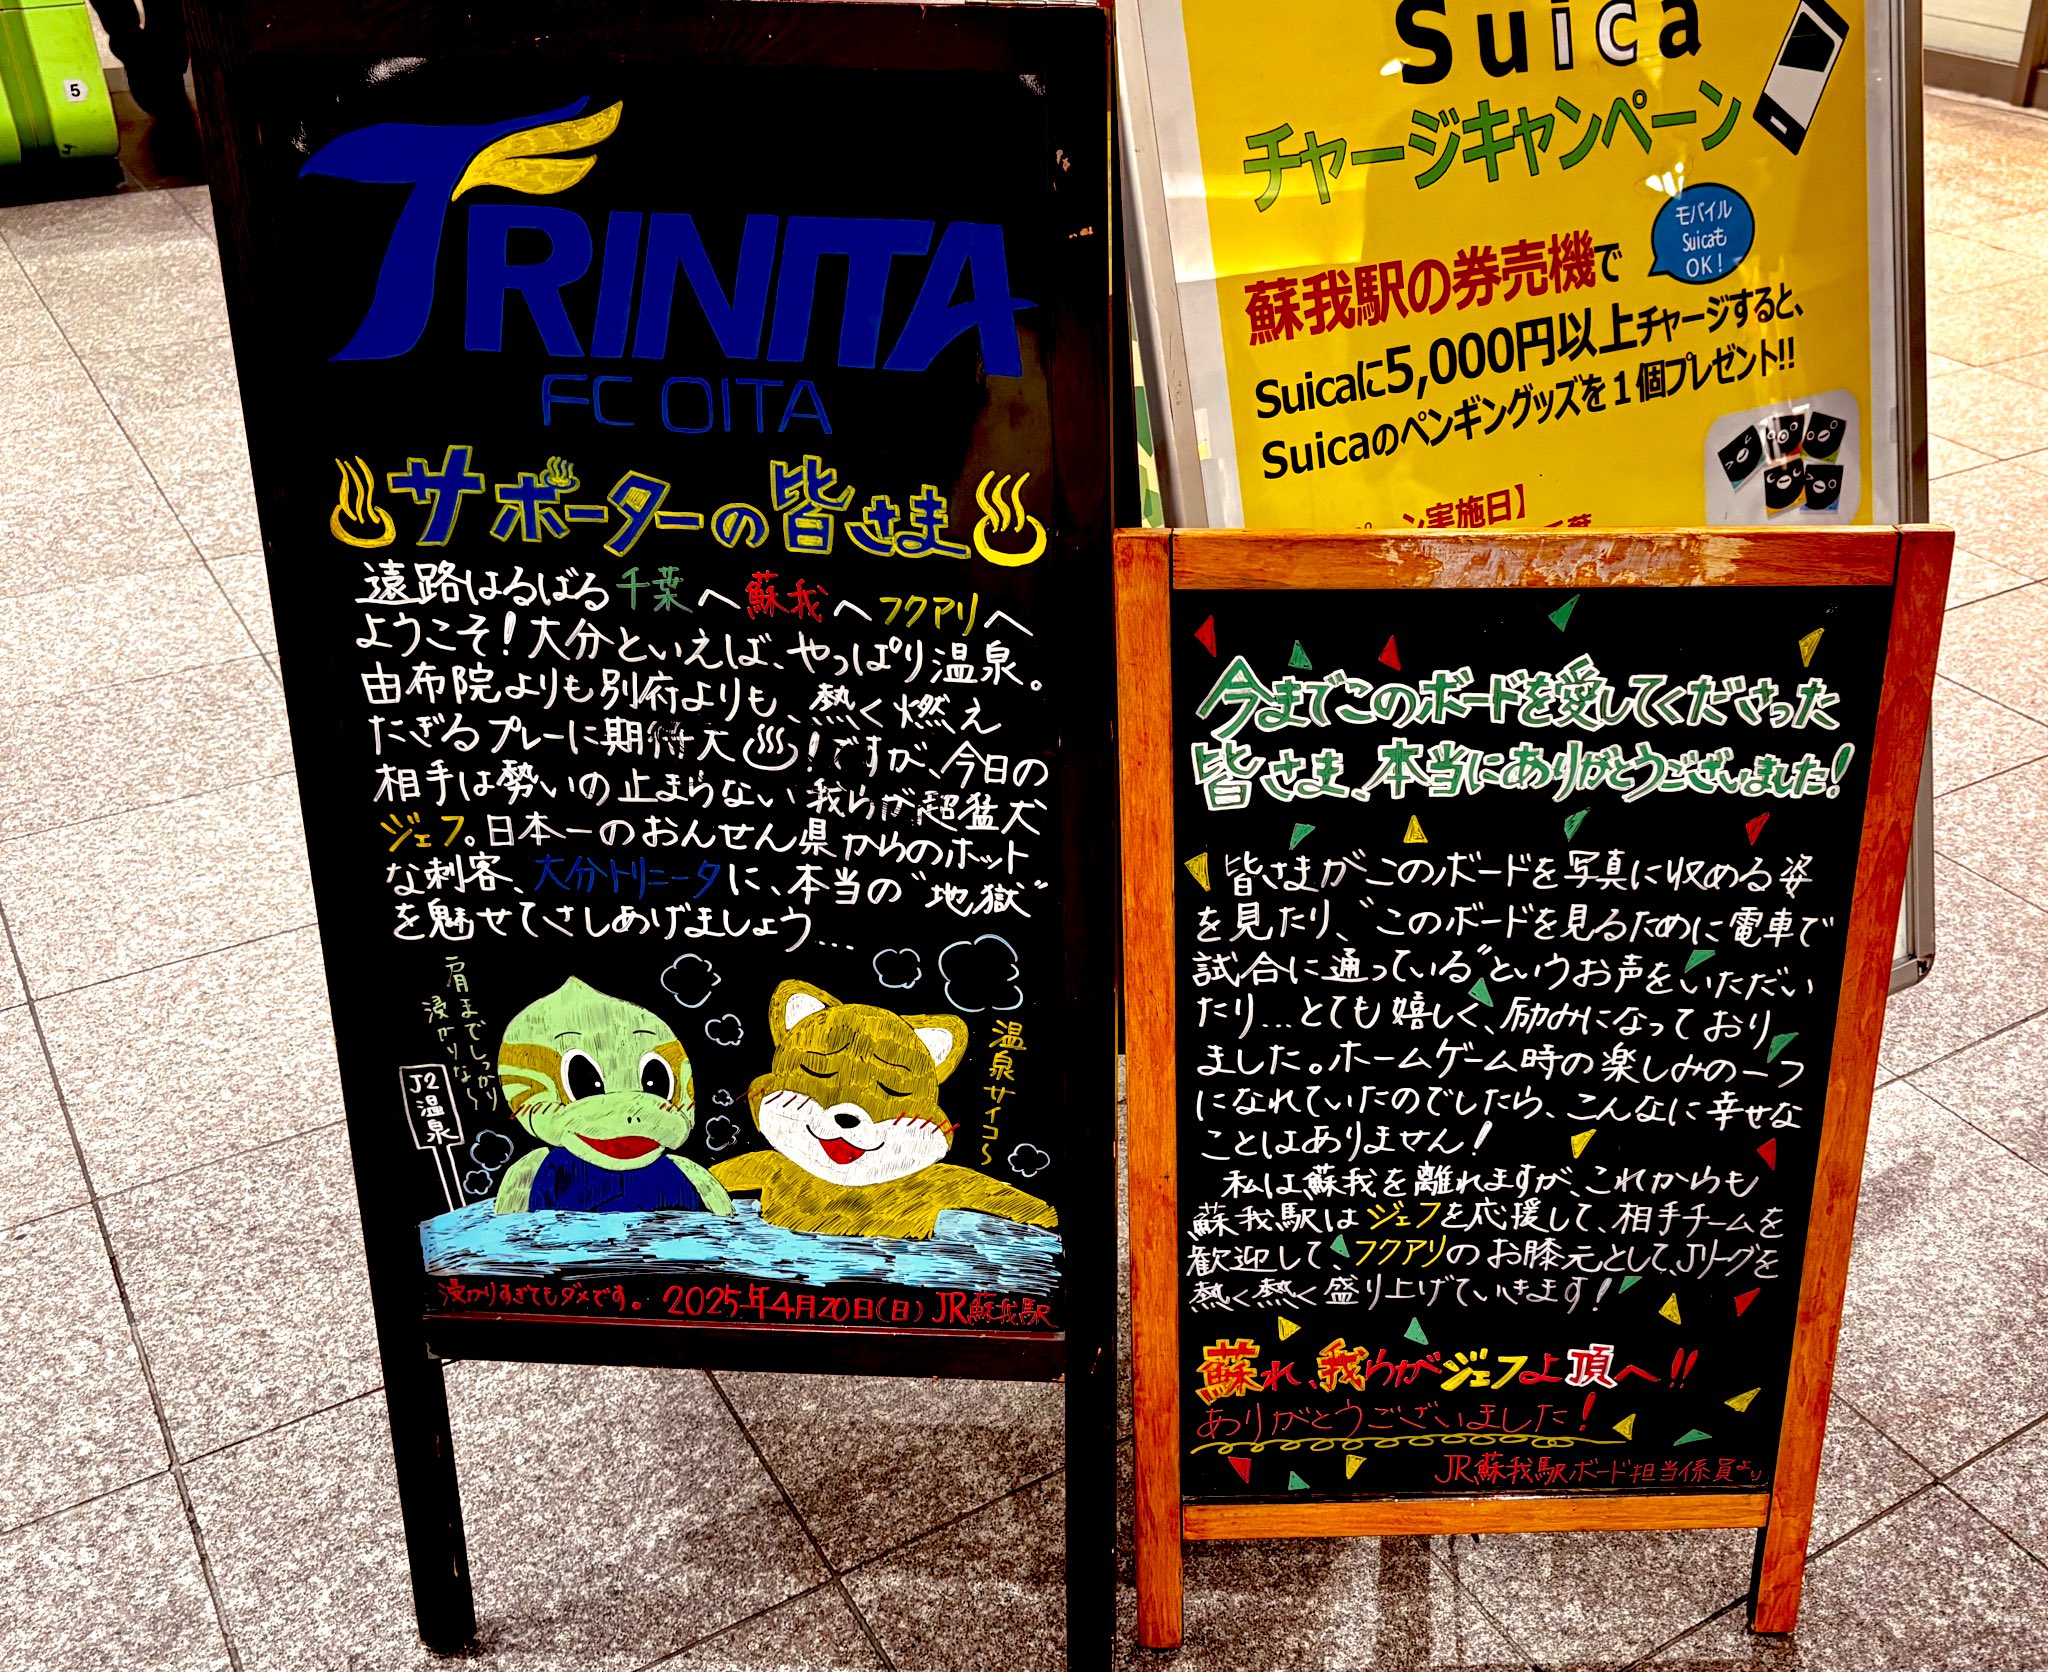 5
TRINITA
FC OITA
サポーターの皆さま
遠路はるばる千葉へ蘇我へフクアリへ
ようこそ！大分といえば、やっぱり温泉。
由布院よりも別府よりも、熱く燃え
たぎるプレーに期待大♨！ですが、今日の
相手は勢いの止まらない我らが超猛犬
ジェフ。日本一のおんせん県からのホット
な刺客、大分トリニータに、本当の“地獄”
を魅せてさしあげましょう…
肩までしっかり
浸かりな～
J2
温泉
温泉サイコ～
浸かりすぎてもダメです。2025年4月20日(日) JR蘇我駅
Suica
チャージキャンペーン
モバイル
Suicaも
OK！
蘇我駅の券売機で
Suicaに5,000円以上チャージすると、
Suicaのペンギングッズを1個プレゼント!!
ン実施日】
今までこのボードを愛してくださった
皆さま、本当にありがとうございました！
皆さまがこのボードを写真に収める姿
を見たり、“このボードを見るために電車で
試合に通っている”というお声をいただい
たり…とても嬉しく、励みになっており
ました。ホームゲーム時の楽しみの一つ
になれていたのでしたら、こんなに幸せな
ことはありません！
私は蘇我を離れますが、これからも
蘇我駅はジェフを応援して、相手チームを
歓迎して、フクアリのお膝元として、Jリーグを
熱く熱く盛り上げていきます！
蘇れ、我らがジェフよ頂へ!!
ありがとうございました！
JR蘇我駅ボード担当係員より